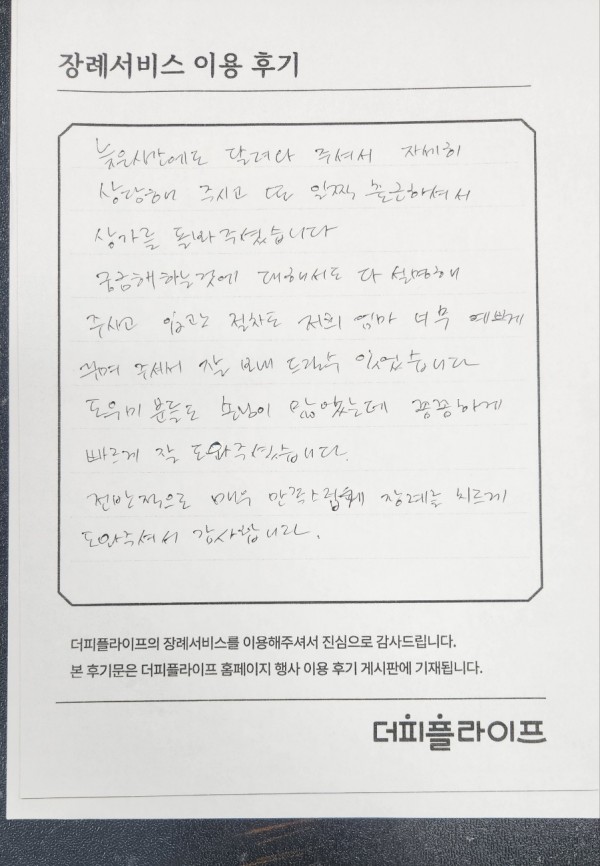 장례서비스 이용 후기
늦은시간에도 달려와 주셔서 자세히
상담해 주시고 또 일찍 출근하셔서
상가를 돌봐주셨습니다
궁금해하는것에 대해서도 다 설명해
주시고 입관 절차도 저희 엄마 너무 예쁘게
꾸며 주셔서 잘 보내 드릴수 있었습니다
도우미분들도 손님이 많았는데 꼼꼼하게
빠르게 잘 도와주셨습니다.
전반적으로 매우 만족스럽게 장례를 치르게
도와주셔서 감사합니다.
더피플라이프의 장례서비스를 이용해주셔서 진심으로 감사드립니다.
본 후기문은 더피플라이프 홈페이지 행사 이용 후기 게시판에 기재됩니다.
더피플라이프